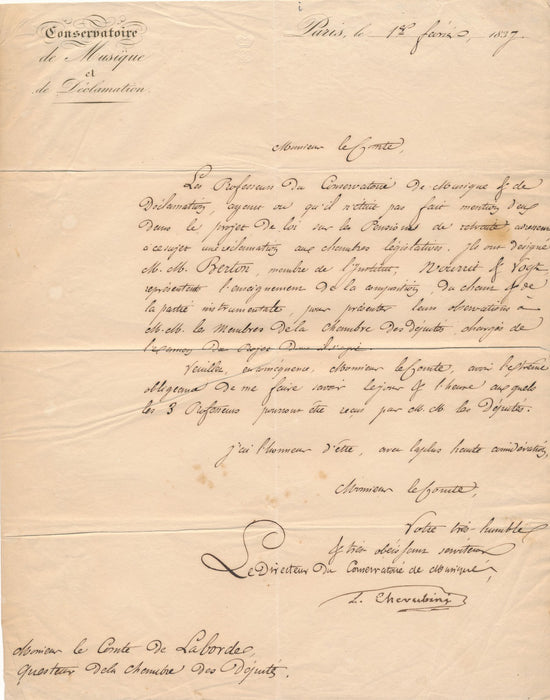 Conservatoire
de Musique
et
de Déclamation.
Paris, le 1er février, 1837.
Monsieur le Comte,
Les Professeurs du Conservatoire de Musique & de
Déclamation, ayant vu qu'il n'était pas fait mention d'eux
dans le projet de loi sur les Pensions de retraite adressent
à ce sujet une réclamation aux chambres législatives. Ils ont désigné
M. M. Berton, membre de l'Institut, Nourrit & Vogt
représentant l'enseignement de la composition, du chant & de
la partie instrumentale, pour présenter leurs observations à
M. M. les Membres de la Chambre des députés chargés de
l'examen du Projet dont il s'agit.
Veuillez, en conséquence, Monsieur le Comte, avoir l'extrême
obligeance de me faire savoir le jour & l'heure auxquels
les 3 Professeurs pourront être reçus par M. M. les Députés.
J'ai l'honneur d'être, avec la plus haute considération,
Monsieur le Comte,
Votre très-humble
& très obéissant serviteur
Le Directeur du Conservatoire de Musique,
L. Cherubini
Monsieur le Comte de Laborde,
questeur de la Chambre des Députés.